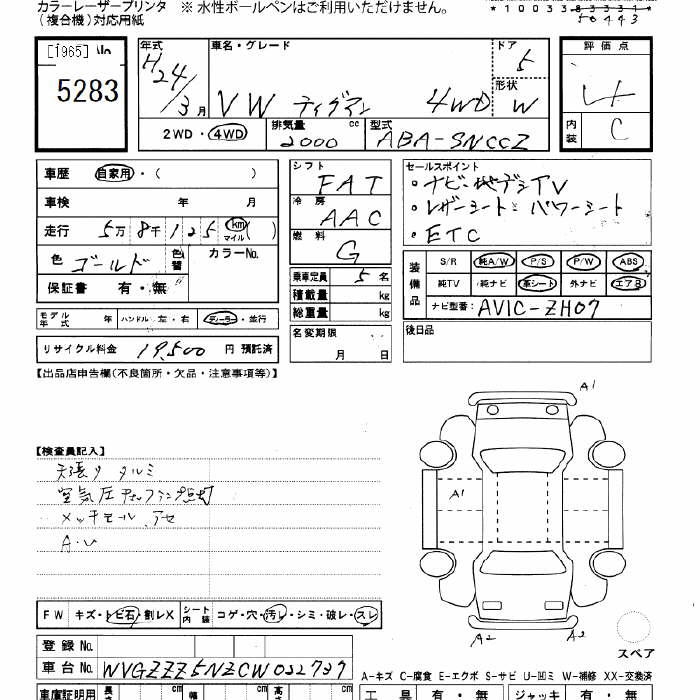 カラーレーザープリンタ ※ 水性ボールペンはご利用いただけません。
(複合機)対応用紙
[1965]
5283
年式 H24/3月
車名・グレード VW ティグアン 4WD
ドア 5
形状 W
評価点
内装 C
2WD・4WD
排気量 2000 cc
型式 ABA-5NCCZ
車歴 自家用・( )
車検 年 月
走行 5万8千125 km マイル( )
色 ゴールド 色替 カラーNo.
保証書 有・無
モデル年式 年 ハンドル 左・右 ディーラー・並行
リサイクル料金 19,500 円 預託済
シフト FAT
冷房 AAC
燃料 G
乗車定員 5名
積載量 kg
総重量 kg
名変期限 月 日
セールスポイント
・ナビ・地デジTV
・レザーシート・パワーシート
・ETC
装備品
S/R 純A/W P/S P/W ABS
純TV 純ナビ 革シート 外ナビ エアB
ナビ型番: AVIC-ZH07
後日品
【出品店申告欄(不良箇所・欠品・注意事項等)】
【検査員記入】
天張り タルミ
空気圧
メッキモール
A・U
FW キズ・トビ石・割レX シート内装 コゲ・穴・汚レ・シミ・破レ・スレ
A1
A1
A2
A2
スペア
登録No.
車台No. WVGZZZ5NZCW032737
A-キズ C-腐食 E-エクボ S-サビ U-凹ミ W-補修 XX-交換済
車庫証明用 長さ cm 幅 cm 高さ cm
工具 有・無 ジャッキ 有・無